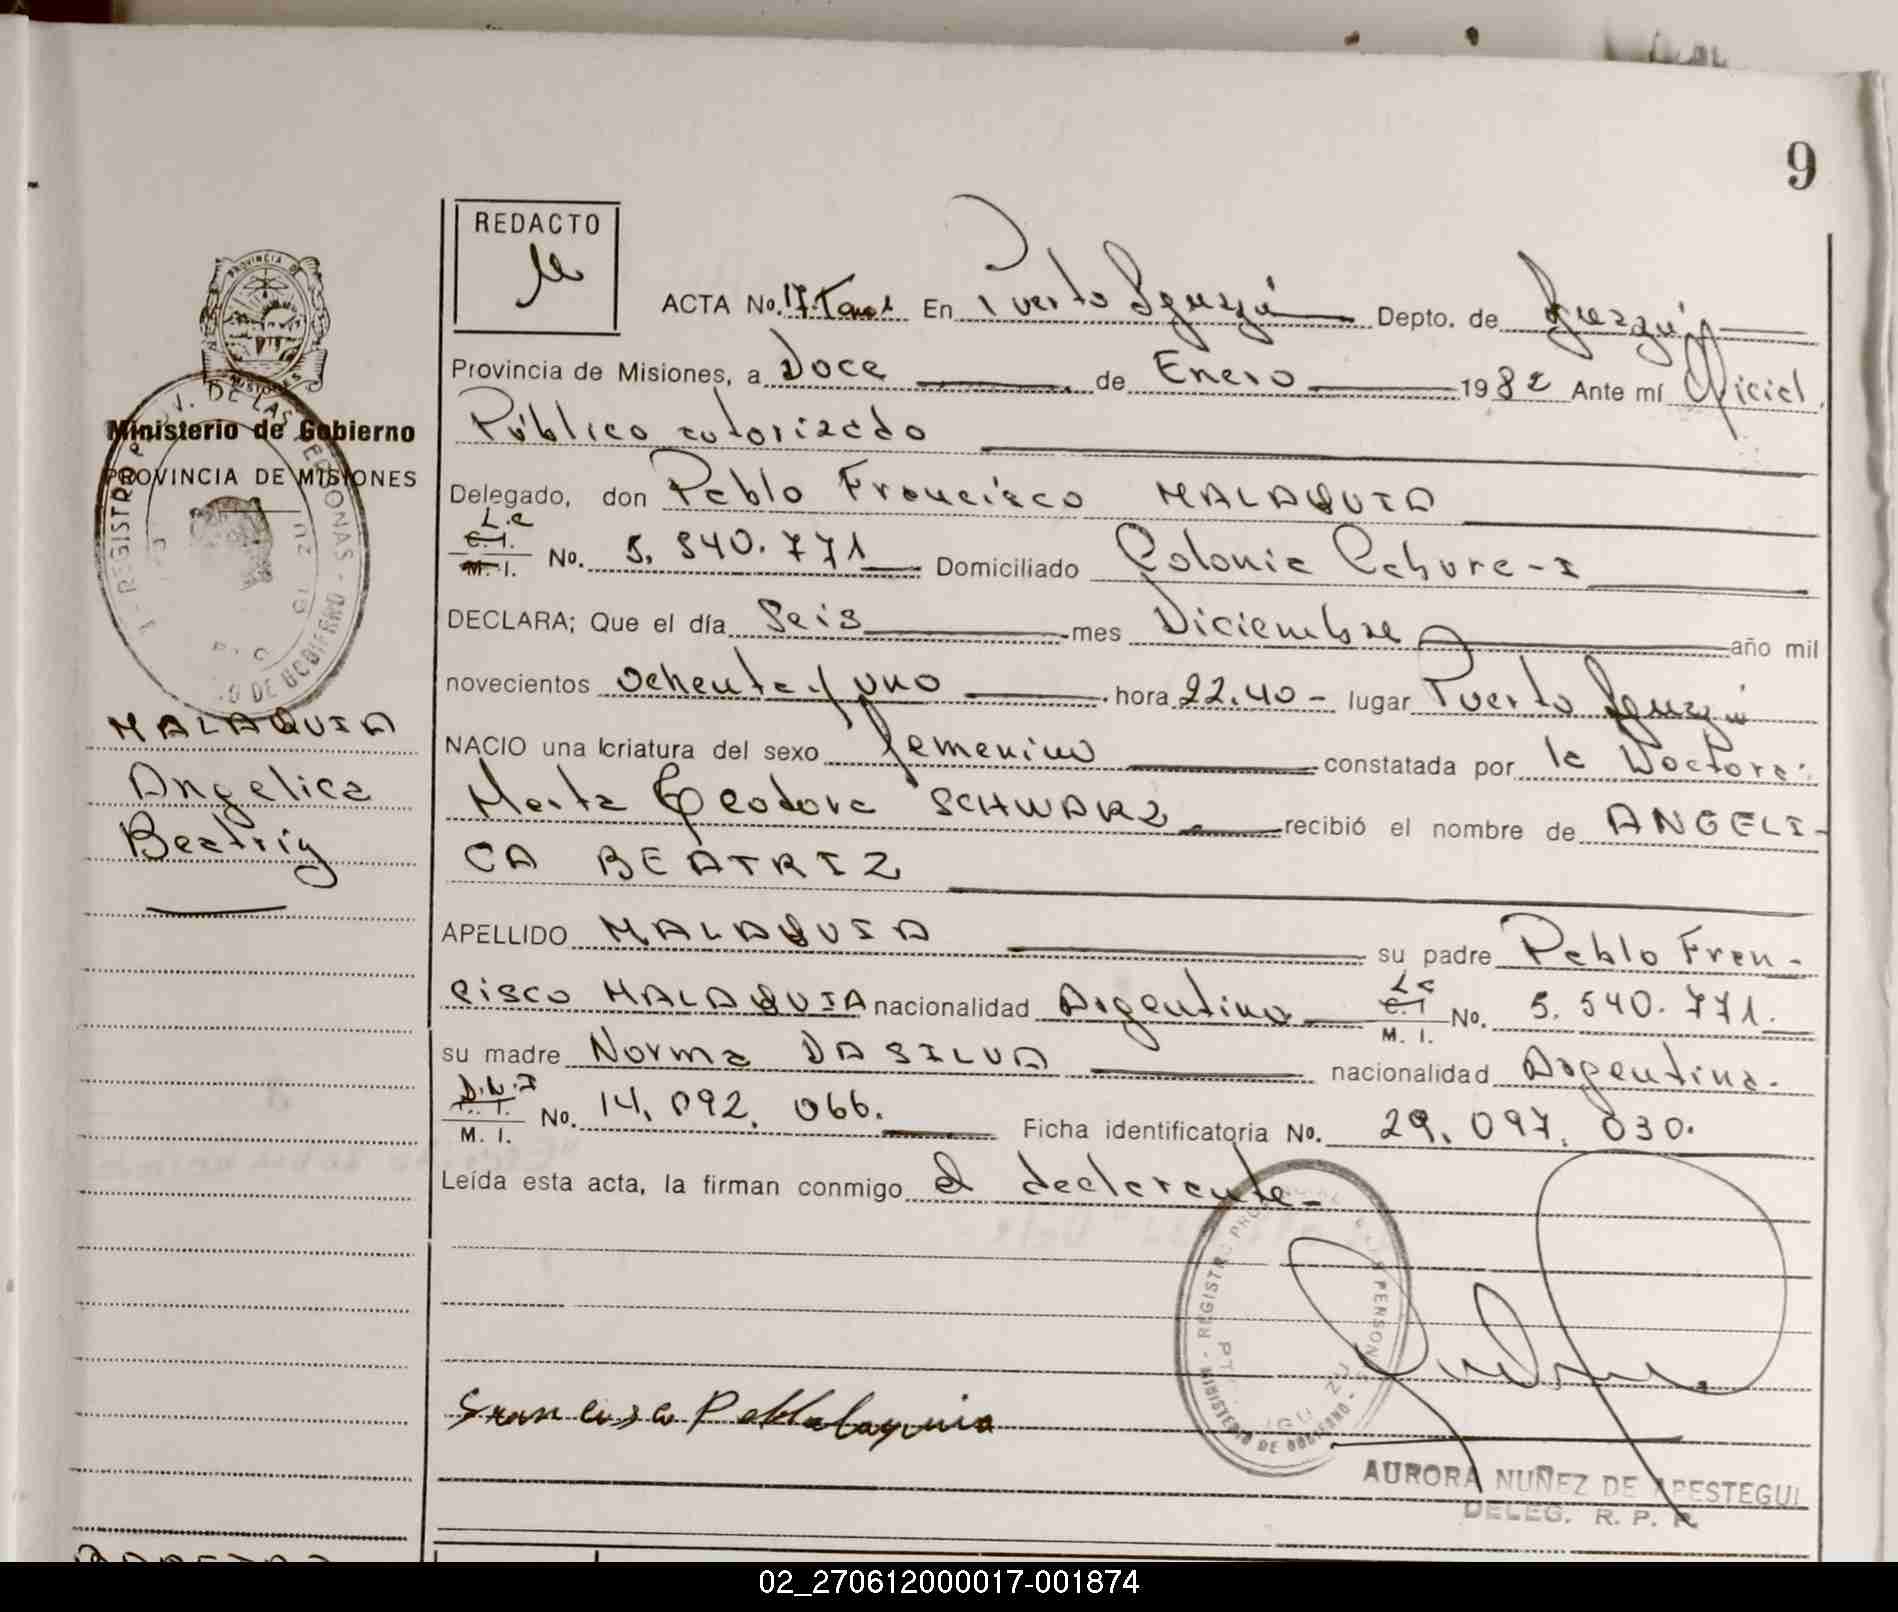 9
REDACTO
ACTA No. 17. Tomo 1 En Puerto Iguazú Depto. de Iguazú
Provincia de Misiones, a Doce de Enero 1982 Ante mí Oficial
Público autorizado
Ministerio de Gobierno
PROVINCIA DE MISIONES
Delegado, don Pablo Francisco MALAQUIA
L.E
C.I.
M. I. No. 5.540.771 Domiciliado Colonia Cabure-I
DECLARA; Que el día Seis mes Diciembre año mil
novecientos ochenta y uno hora 22.40- lugar Puerto Iguazú
MALAQUIA
Angelica
Beatriz
NACIO una criatura del sexo femenino constatada por la Doctora
Marta Teodora SCHWARZ recibió el nombre de ANGELI-
CA BEATRIZ
APELLIDO MALAQUIA su padre Pablo Fran-
cisco MALAQUIA nacionalidad Argentino L.E C.I M. I. No. 5.540.771.
su madre Norma DA SILVA nacionalidad Argentina.
D.N.I
C. I.
M. I. No. 14.092.066. Ficha identificatoria No. 29.097.030.
Leída esta acta, la firman conmigo el declarante-
REGISTRO PROV. DE LAS PERSONAS - MINISTERIO DE GOBIERNO
AURORA NUÑEZ DE APESTEGUI
DELEG. R. P. P.
02_270612000017-001874